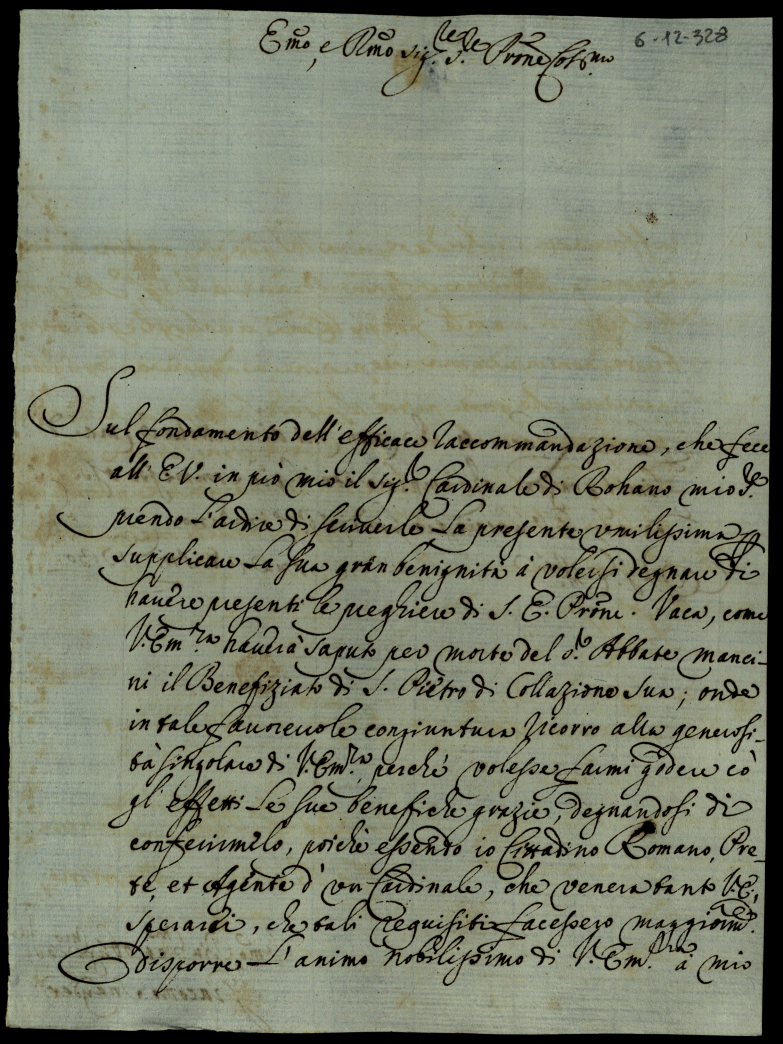 Emo, e Rmo Sig.re S.re Prone Col.mo
6-12-328
Sul fondamento dell'efficace raccommandazione, che fece
all' E.V. in più mio il Sig.r Cardinale di Rohano mio S.re
prendo l'ardire di scriverle la presente umilissima p
supplicare la sua gran benignità à volersi degnare di
havere presenti le preghiere di S. E. Prone. Vaca, come
V. Em.za haverà saputo per morte del S.r Abbate Manci-
ni il Benefiziato di S. Pietro di Collazione sua; onde
in tale favorevole congiuntura ricorro alla generosi-
tà singolare di V. Em.za, perché volesse farmi godere cò
gl'effetti le sue benefiche grazie, degnandosi di
conferirmelo, poiché essendo io Cittadino Romano, Pre-
te, et Agente d'un Cardinale, che venera tanto V.E.,
sperarei, che tali requisiti facessero maggiorm.te
disporre l'animo nobilissimo di V. Em.za à mio